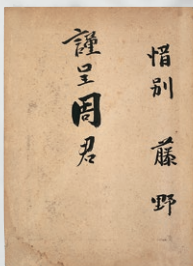 惜別　藤野
謹呈周君